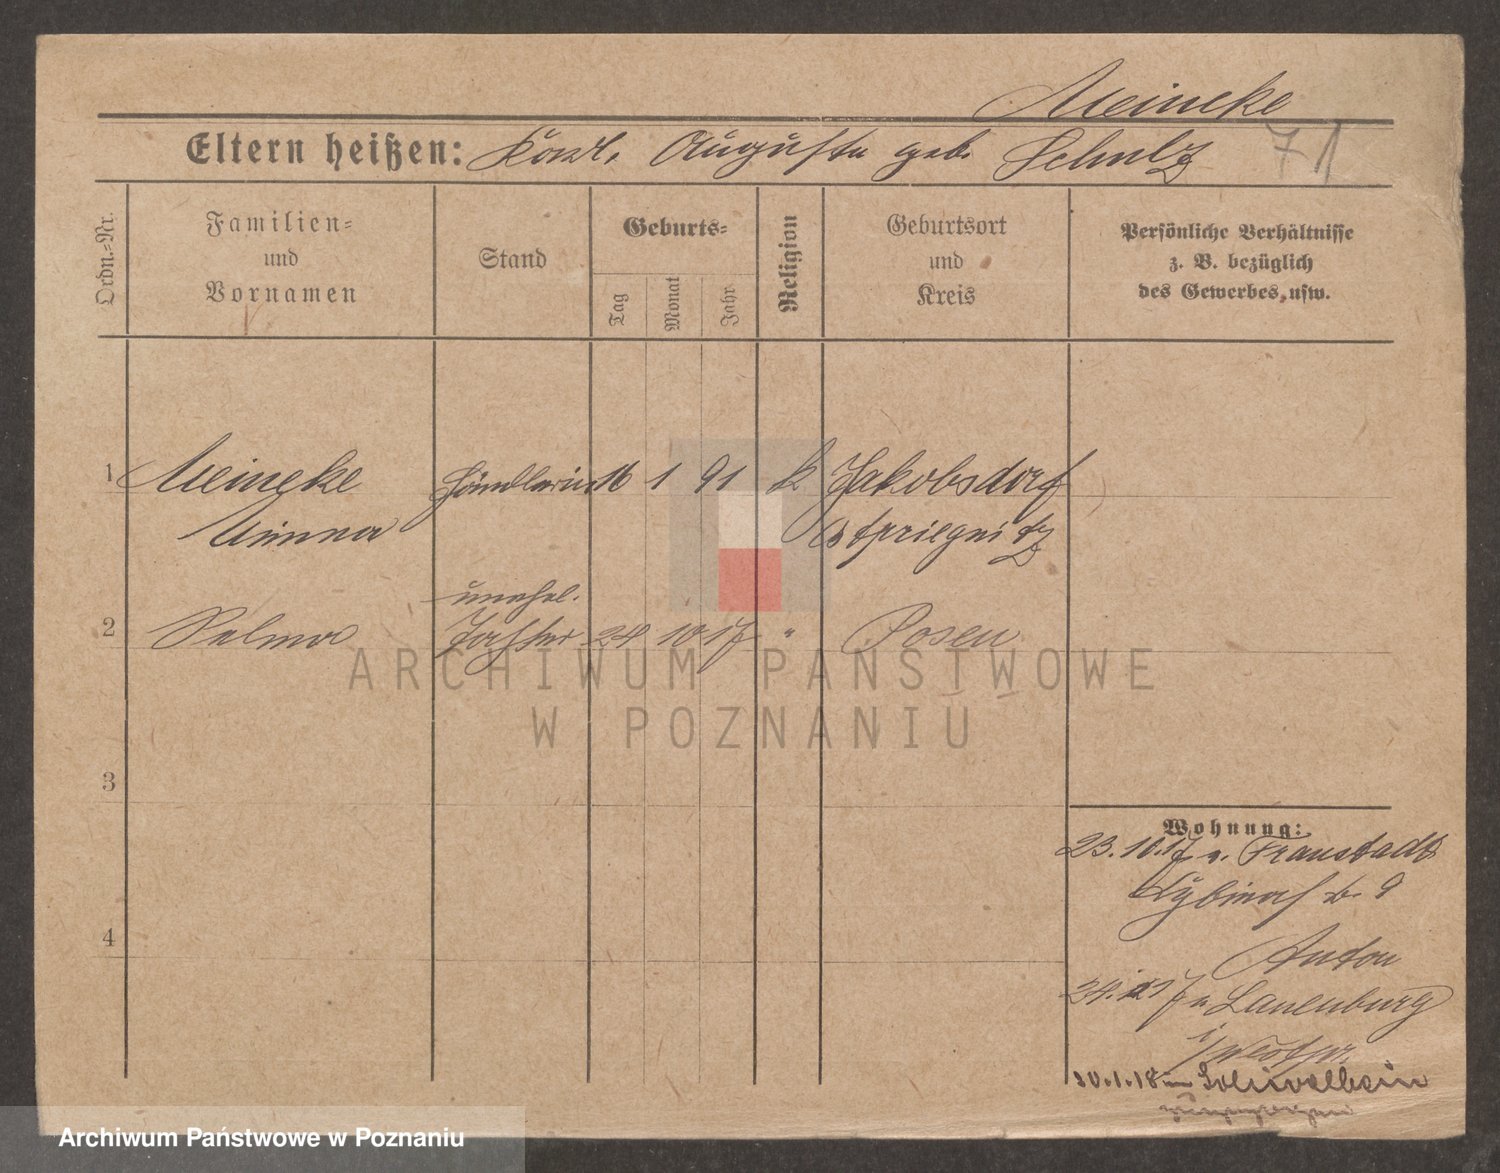 Meincke
71
Eltern heißen: Karl, Auguste geb. Schulz
Ordn.-Nr.
Familien-
und
Vornamen
Stand
Geburts-
Tag
Monat
Jahr
Religion
Geburtsort
und
Kreis
Persönliche Verhältnisse
z. B. bezüglich
des Gewerbes, usw.
1 Meincke Händlerin 16 1 91 k Jakobsdorf
Minna Ostpriegnitz
unehel.
2 Selma Tochter 24 10 17 " Posen
3
4
Wohnung:
23.10.17 v. Fraustadt
b. 9
Anton
24. 17 n Lauenburg
i/Westpr.
30.1.18 Schivelbein
ARCHIWUM PAŃSTWOWE
W POZNANIU
Archiwum Państwowe w Poznaniu